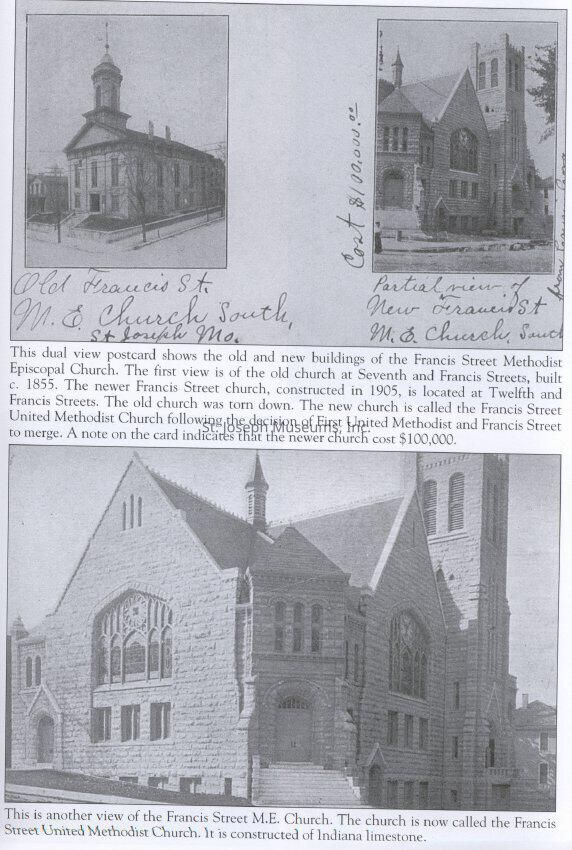 Cost $100,000.00
Old Francis St.
M. E. Church South,
St Joseph Mo.
Partial view of
New Francis St
M. E. Church, South
from
This dual view postcard shows the old and new buildings of the Francis Street Methodist
Episcopal Church. The first view is of the old church at Seventh and Francis Streets, built
c. 1855. The newer Francis Street church, constructed in 1905, is located at Twelfth and
Francis Streets. The old church was torn down. The new church is called the Francis Street
United Methodist Church following the decision of First United Methodist and Francis Street
to merge. A note on the card indicates that the newer church cost $100,000.
St. Joseph Museums, Inc.
This is another view of the Francis Street M.E. Church. The church is now called the Francis
Street United Methodist Church. It is constructed of Indiana limestone.